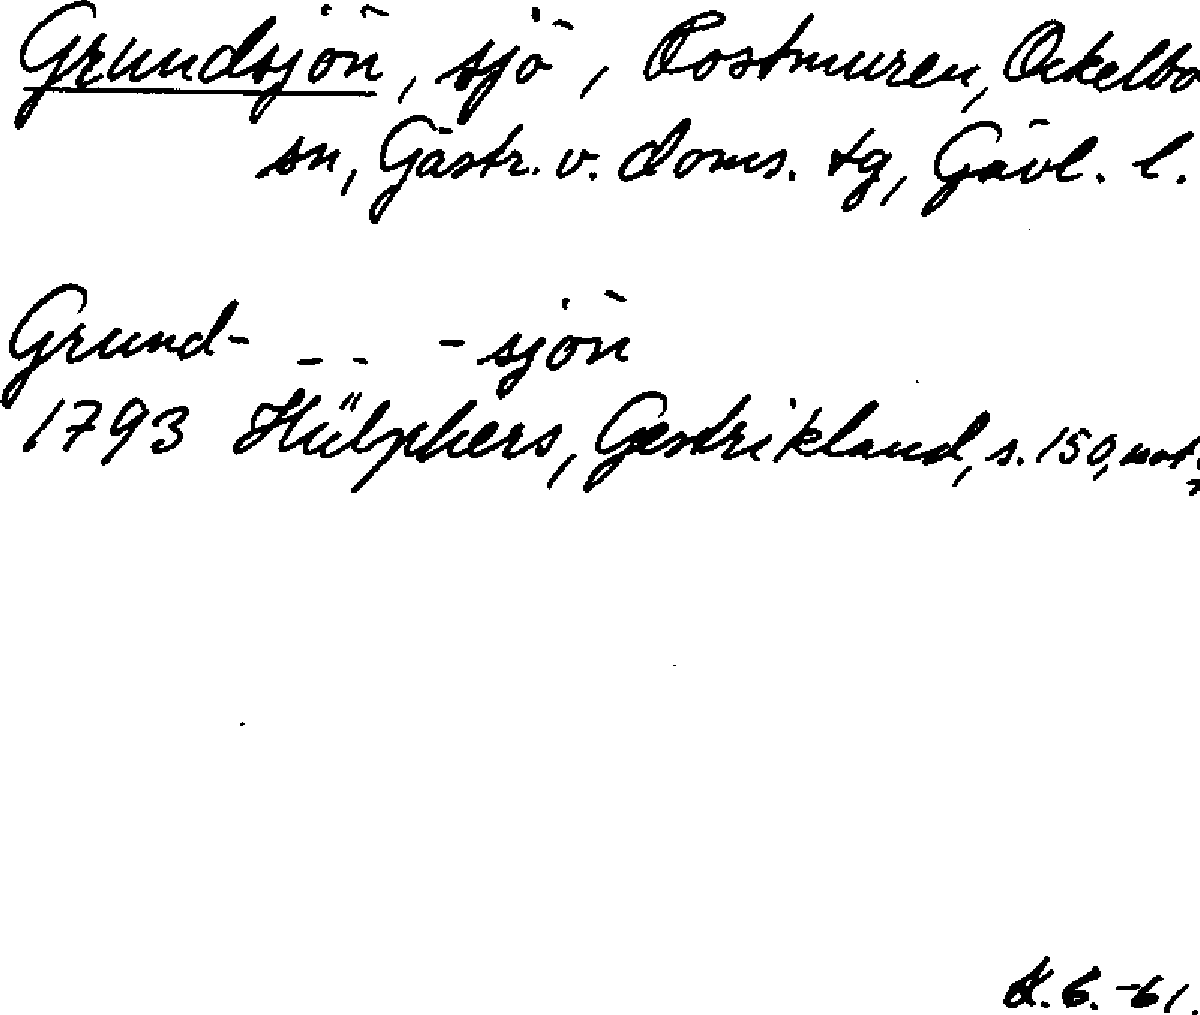 Grundsjön, sjö, Rostmuren, Ockelbo
sn, Gästr. v. doms. tg, Gävl. l.
Grund- - - -sjön
1793 Hülphers, Gestrikland, s. 150, not.
-61.